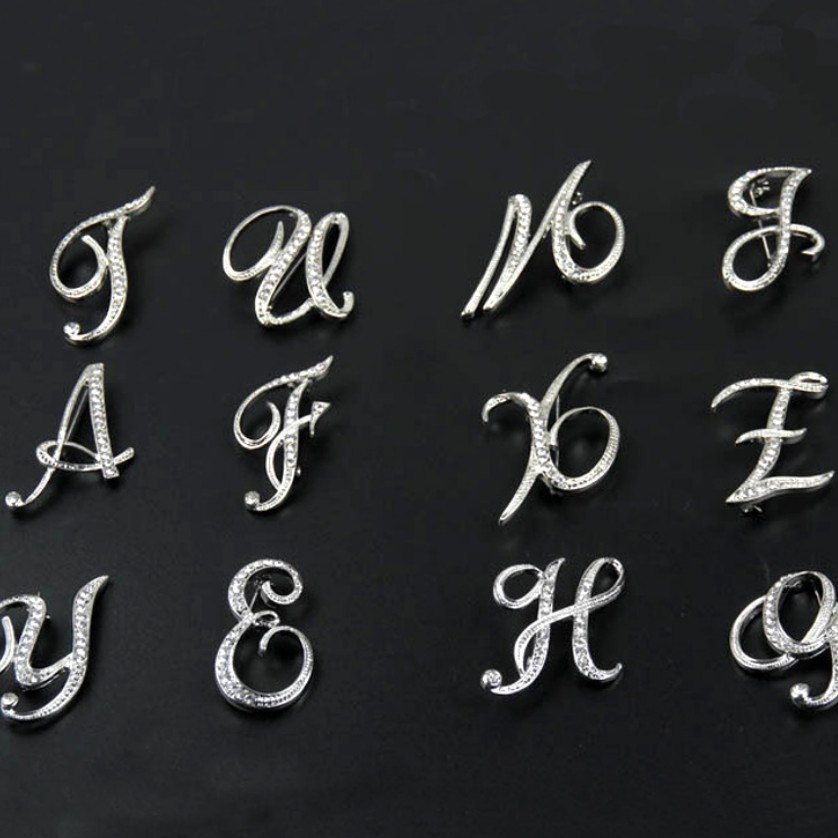 T U M J
A F X Z
Y E H